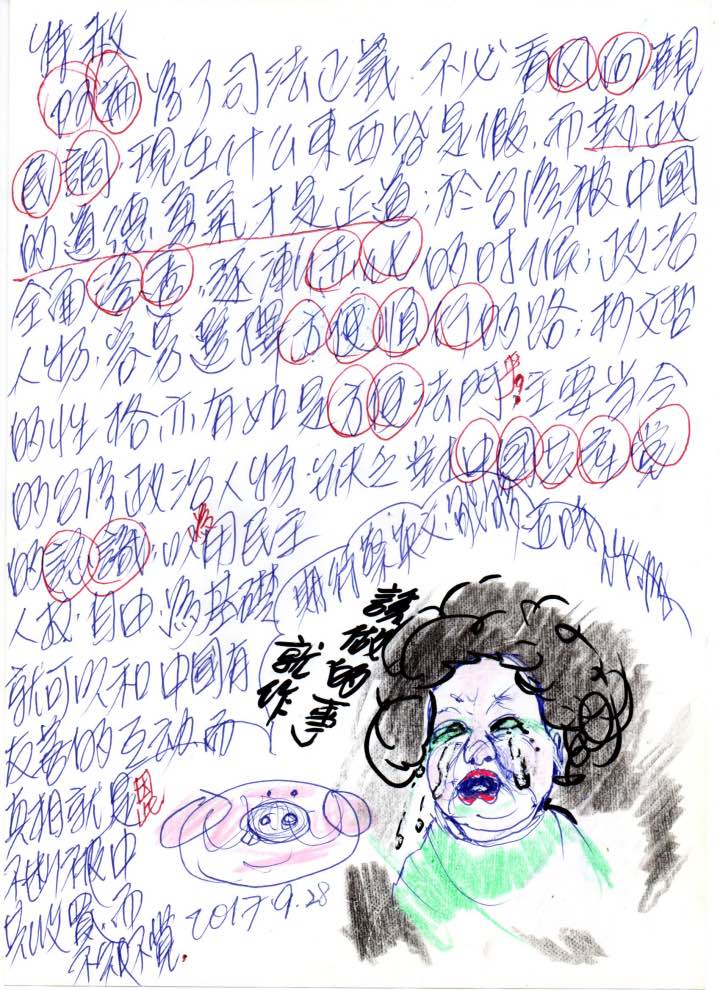 特赦
阿扁為了司法正義.不必看风向觀
民調,現在什么東西皆是假,而執政
的道德勇氣才是正道;於台灣被中國
全面滲透,逐漸赤化的时候;政治
人物.容易選擇方便順行的路;柯文哲
的性格亦有如是方便法門;主要当今
的台灣政治人物.缺乏對中國共產党
的認識,以為用民主
人权.自由.為基礎
就可以和中國有
友善的互动而
真相就是
被中
共收買.而
不知不覺.
期待
該做的事
就作
2017.9.28